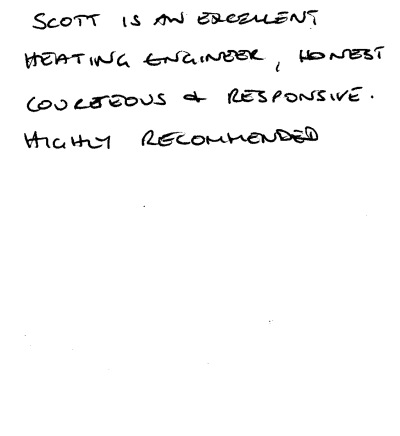 SCOTT IS AN EXCELLENT
HEATING ENGINEER, HONEST
COURTEOUS & RESPONSIVE.
HIGHLY RECOMMENDED